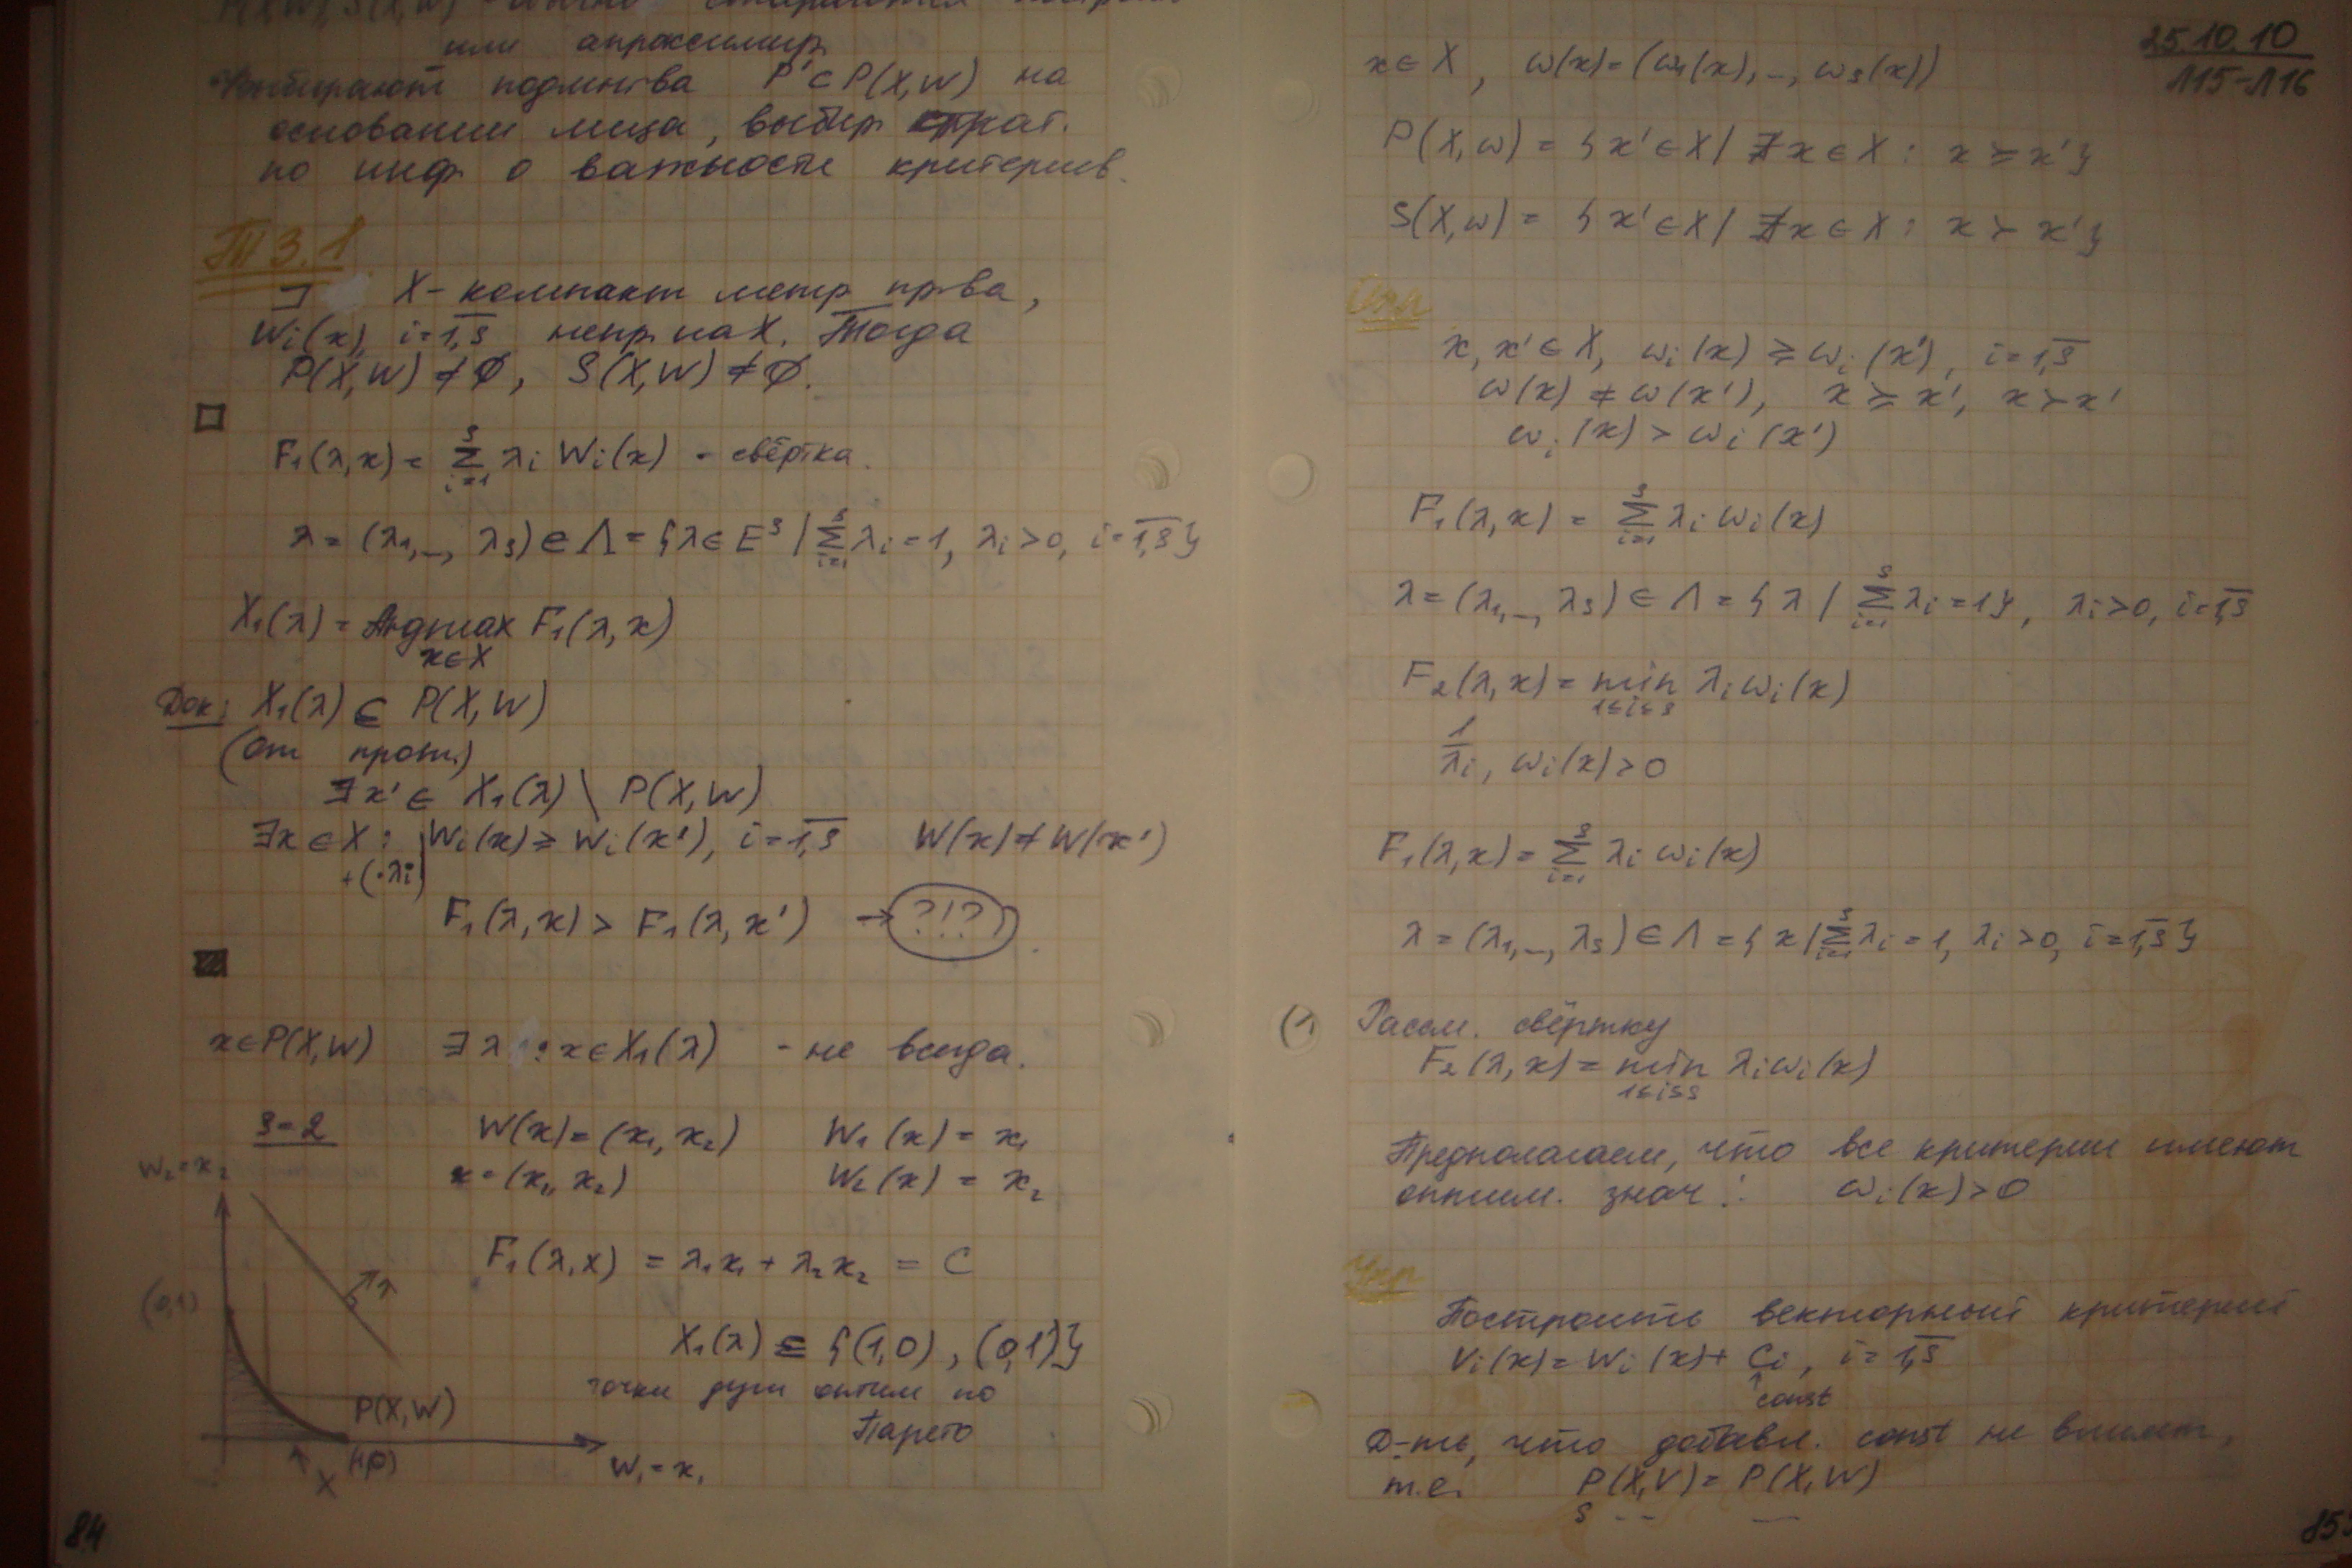 P(X,W), S(X,W) -
или апроксимир.
Выбирают подмн-тва P' ⊂ P(X,W) на
основании лица, выбир. страт.
по инф. о важности критериев.
Т 3.1
∃ X - компакт метр пр-ва,
Wi(x), i=1,s непр на X. Тогда
P(X,W) ≠ ∅, S(X,W) ≠ ∅.
□
F₁(λ,x) = Σ_{i=1}^{s} λi Wi(x) - свёртка.
λ = (λ₁,..., λs) ∈ Λ = {λ ∈ E^s | Σ_{i=1}^{s} λi = 1, λi > 0, i=1,s}
X₁(λ) = Argmax F₁(λ,x)
x∈X
Док: X₁(λ) ⊆ P(X,W)
(От прот.)
∃ x' ∈ X₁(λ) \ P(X,W)
∃x ∈ X: Wi(x) ≥ Wi(x'), i=1,s W(x) ≠ W(x')
+(·λi)
F₁(λ,x) > F₁(λ,x') → ?!? .
■
x∈P(X,W) ∃ λ : x∈X₁(λ) - не всегда.
s=2 W(x) = (x₁, x₂) W₁(x) = x₁
x = (x₁, x₂) W₂(x) = x₂
W₂=x₂
F₁(λ,x) = λ₁x₁ + λ₂x₂ = C
(0,1)
X₁(λ) ⊆ {(1,0), (0,1)}
точки дуги оптим по
Парето
P(X,W)
(1,0)
X
W₁=x₁
84
25.10.10
Л15-Л16
x∈X, ω(x)=(ω₁(x),..., ωs(x))
P(X,ω) = {x'∈X | ∄x∈X: x ≽ x'}
S(X,ω) = {x'∈X | ∄x∈X: x ≻ x'}
Опр
x, x'∈X, ωi(x) ≥ ωi(x'), i=1,s
ω(x) ≠ ω(x'), x ≽ x', x ≻ x'
ωi(x) > ωi(x')
F₁(λ,x) = Σ_{i=1}^{s} λi ωi(x)
λ = (λ₁,..., λs) ∈ Λ = {λ | Σ_{i=1}^{s} λi = 1}, λi > 0, i=1,s
F₂(λ,x) = min λi ωi(x)
1≤i≤s
1/λi, ωi(x) > 0
F₁(λ,x) = Σ_{i=1}^{s} λi ωi(x)
λ = (λ₁,..., λs) ∈ Λ = {x | Σ_{i=1}^{s} λi = 1, λi > 0, i=1,s}
(1 Рассм. свёртку
F₂(λ,x) = min λi ωi(x)
1≤i≤s
Предполагаем, что все критерии имеют
оптим. знач.: ωi(x) > 0
Упр
Построить векторный критерий
Vi(x) = Wi(x) + Ci, i=1,s
const
Д-ть, что добавл. const не влияет,
т.е. P(X,V) = P(X,W)
S -- —
85